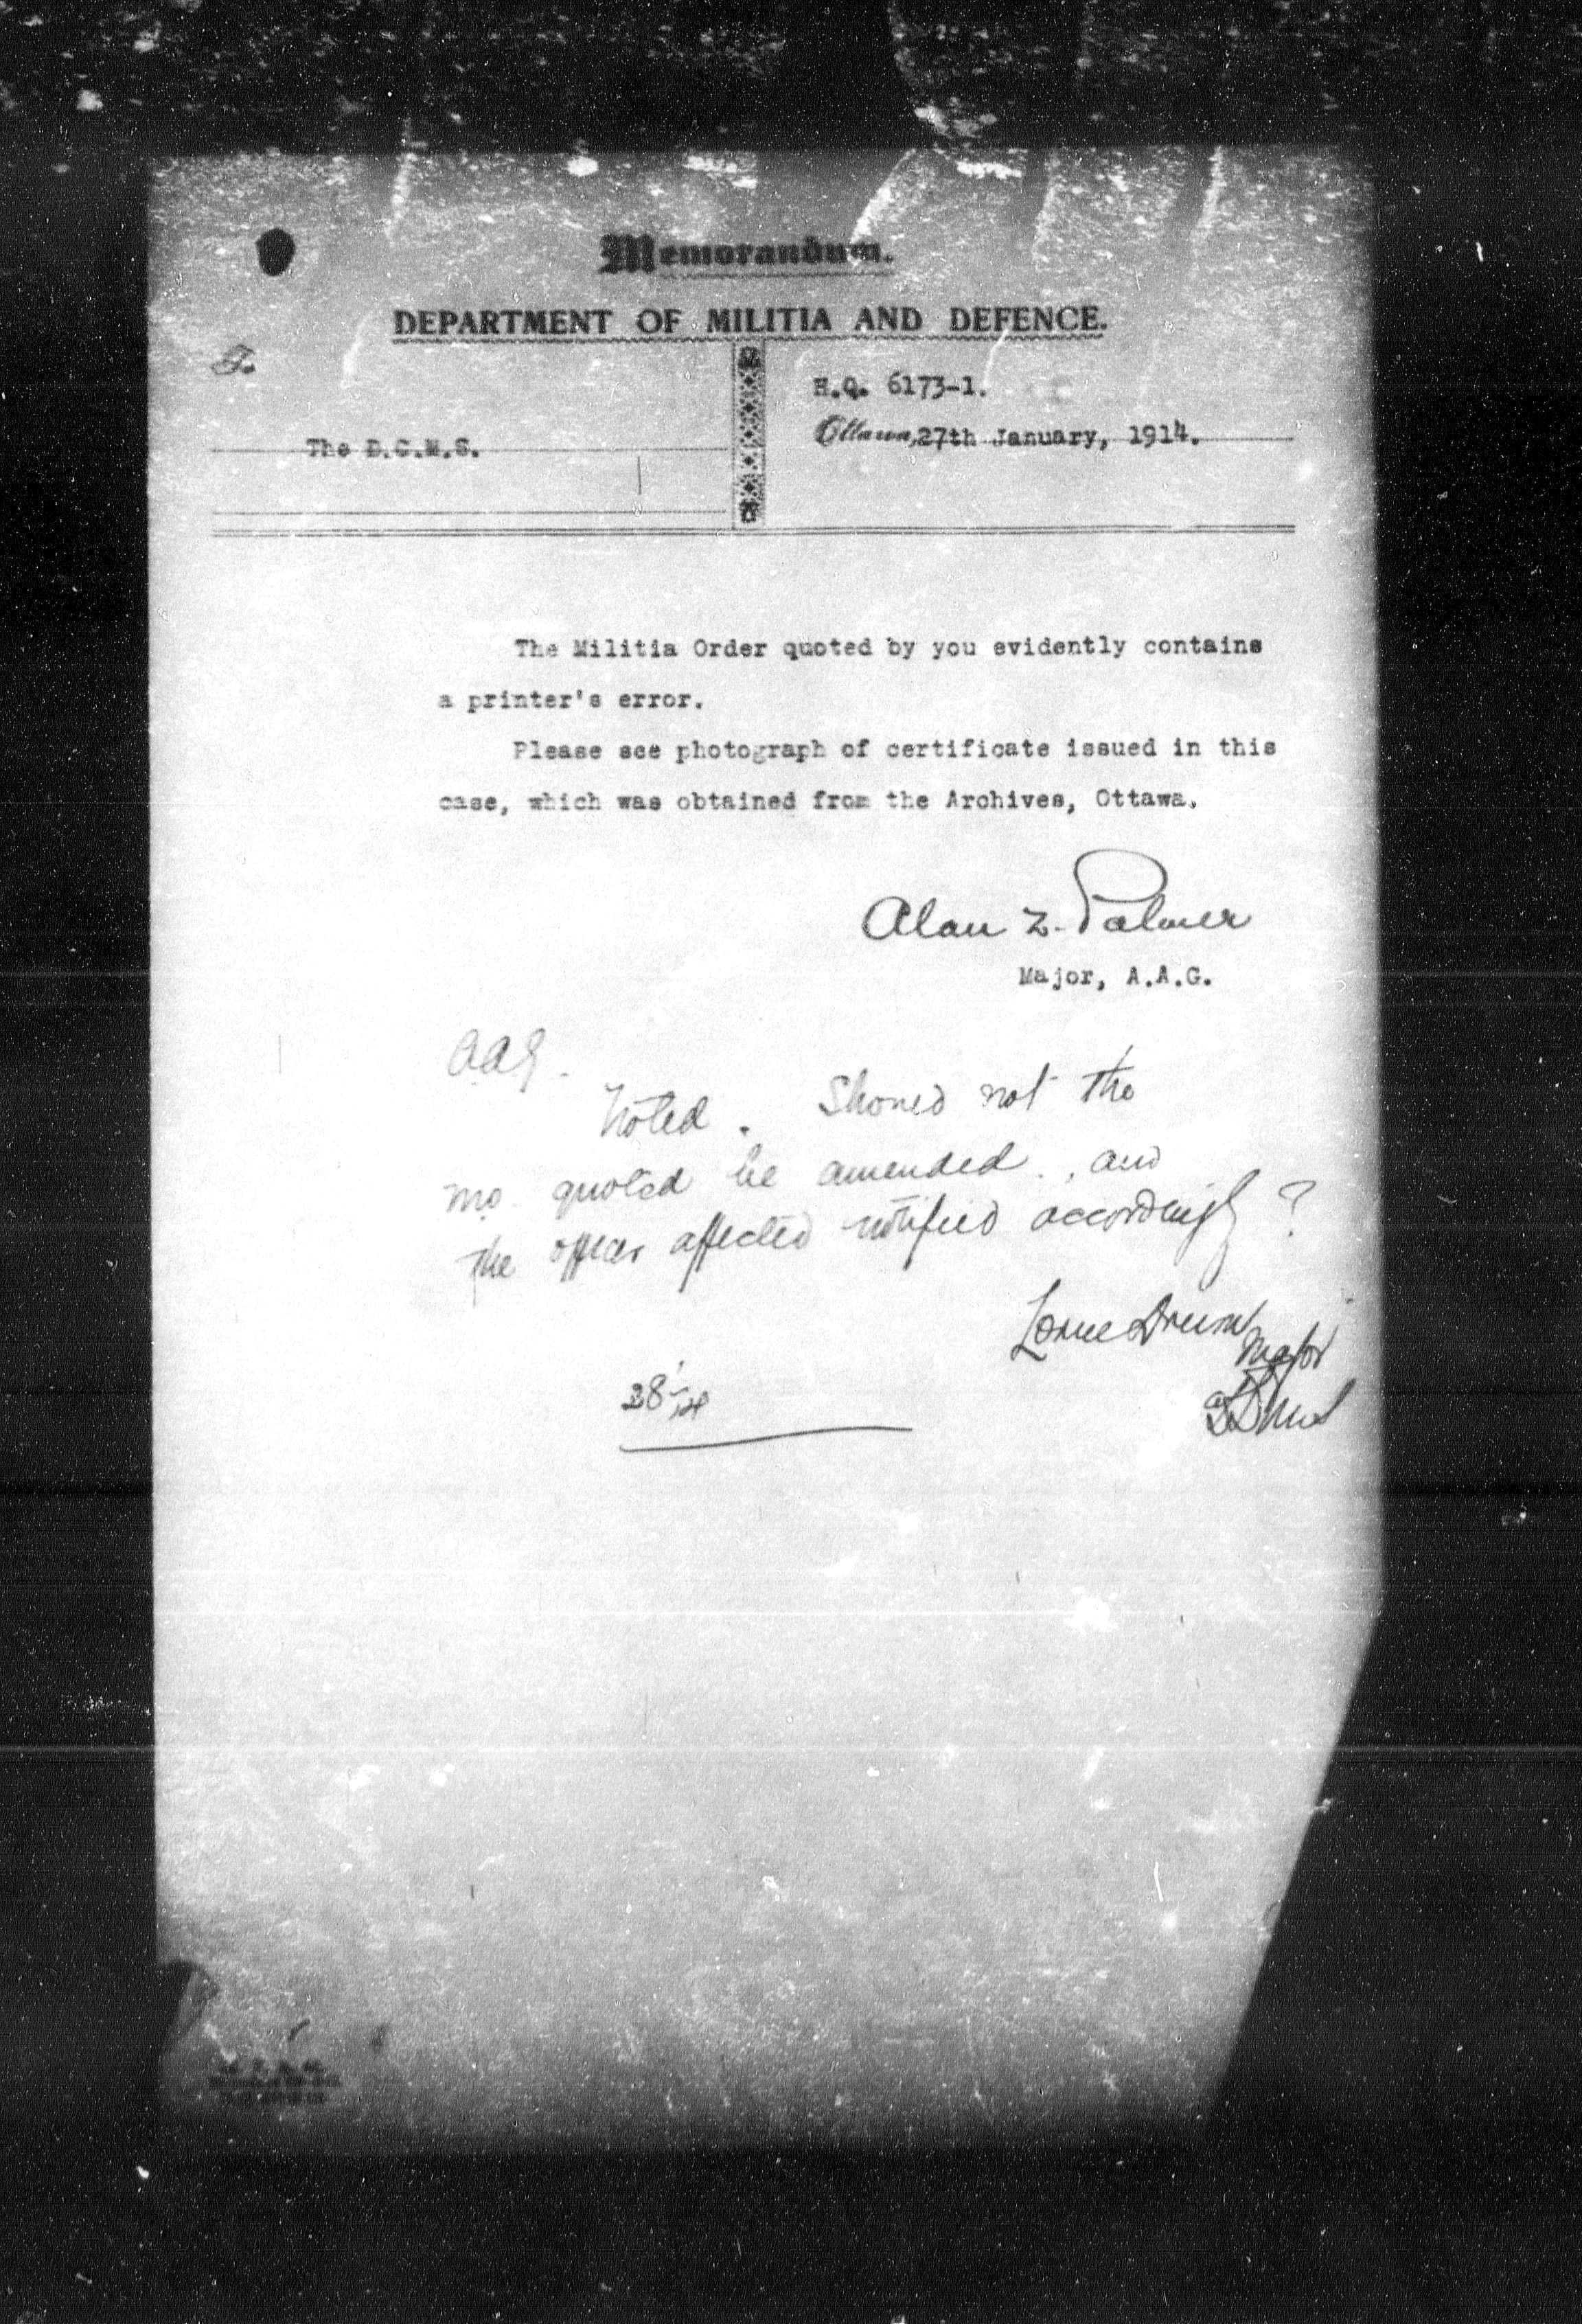 Memorandum.
DEPARTMENT OF MILITIA AND DEFENCE.
To
H.Q. 6173-1.
Ottawa, 27th January, 1914.
The D.G.M.S.
The Militia Order quoted by you evidently contains
a printer's error.
Please see photograph of certificate issued in this
case, which was obtained from the Archives, Ottawa.
Alan Z. Palmer
Major, A.A.G.
AAG.
Noted. Should not the
MO. quoted be amended, and
the officer affected notified accordingly?
Lorne Drum
Major
28/1/14